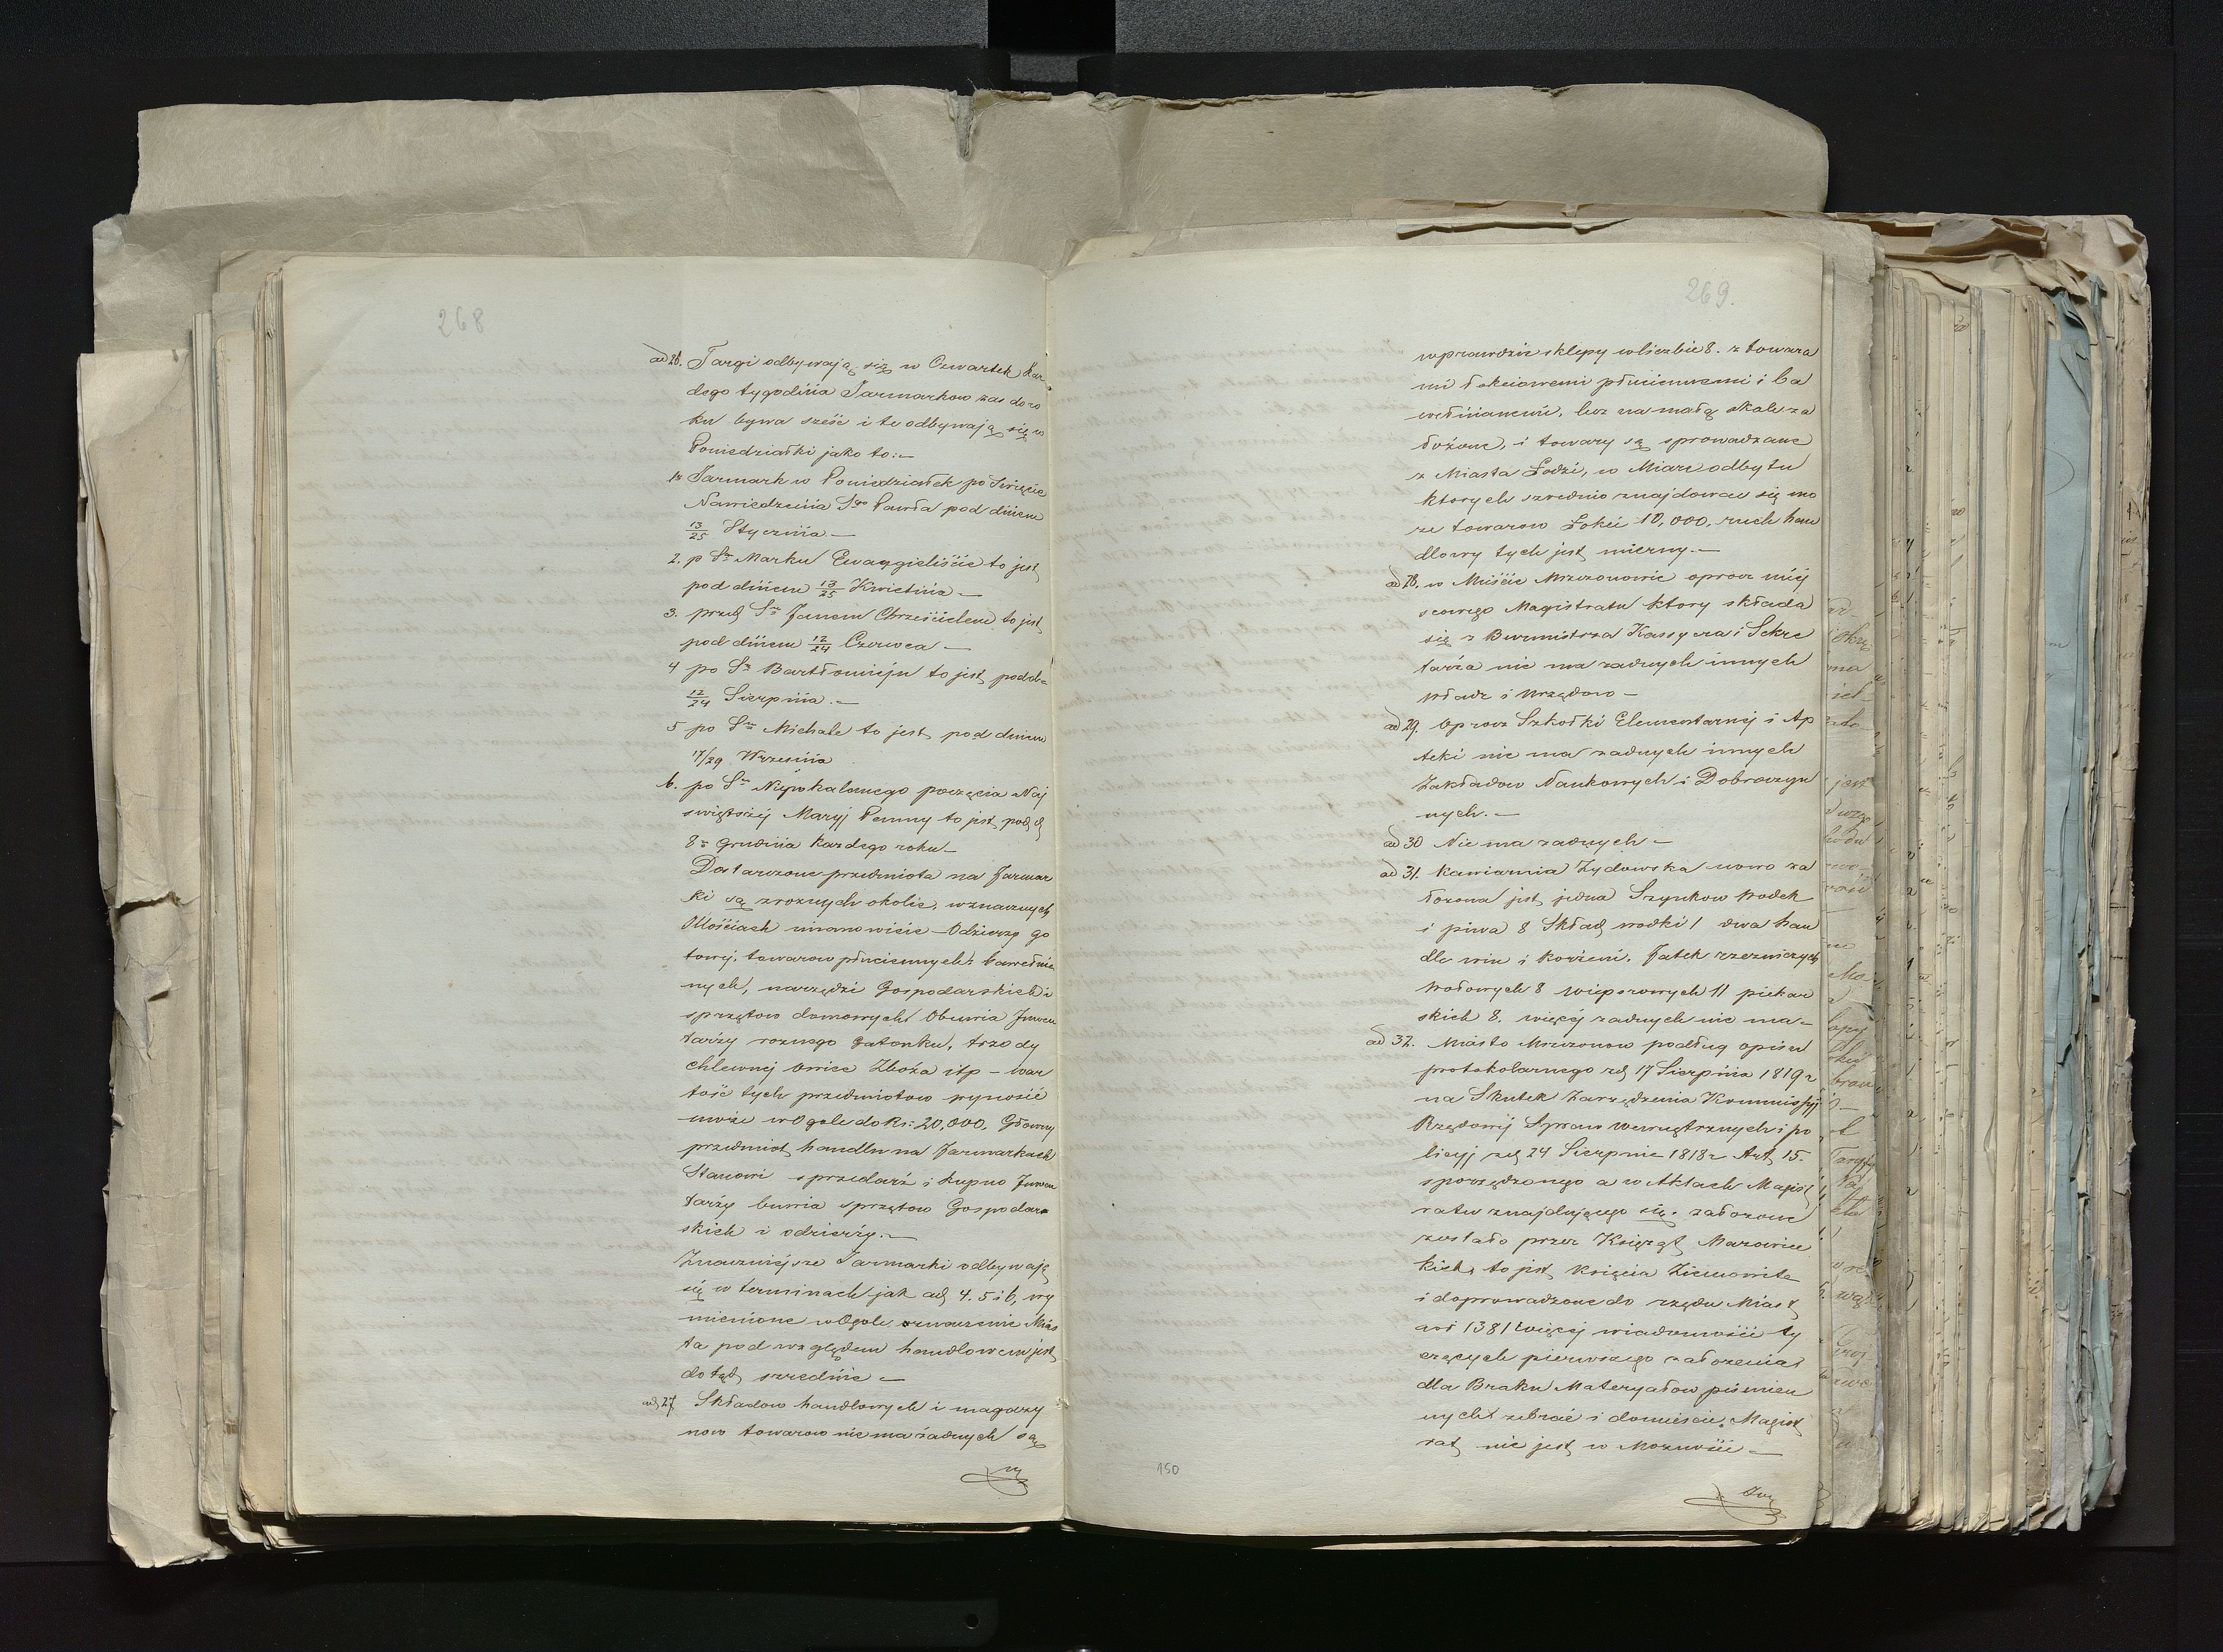 268
ad 26. Targi odbywają się w Czwartek każ
dego tygodnia Jarmarkow zas do ro
ku bywa sześć i te odbywają się w
Poniedziałki jako to:—
1o Jarmark w Poniedziałek po Święcie
Nawiedzenia Sgo Pawła pod dniem
13/25 Stycznia.—
2. p Sm Marku Ewangieliście to jest
pod dniem 13/25 Kwietnia —
3. przed Sm Janem Chrzcicielem to jest
pod dniem 12/24 Czerwca —
4 po Sm Bartłomieju to jest pod d=
12/24 Sierpnia.—
5 po Sm Michale to jest pod dniem
17/29 Wrzesnia
6. po Sm Niepokalanego poczęcia Naj
swiętszej Maryj Panny to jest pod d
8m grudnia każdego roku—
Dostarczone przedmiota na Jarmar
ki są z roznych okolic, w znacznych
Illościach mianowicie — Odzieży go
towej, towarow płuciennych i bawełnia
nych, narzędzi Gospodarskich i
sprzętow domowych Obuwia Inwen
tarży roznego gatonku, trzody
chlewnej owiec Zboża itp — war
tość tych przedmiotow wynosić
może w Ogole do Rs: 20,000, Głowny
przedmiot handlu na Jarmarkach
Stanowi sprzedarż i kupno Inwen
tarży buwia sprzętow Gospodar
skich i odzierży.—
Znaczniejsze Jarmarki odbywają
się w terminach jak ad 4. 5 i 6, wy
mienione w Ogole znaczenie Mias
ta pod względem handlowem jest
dotąd srzednie —
ad 27 Składow handlowych i magazy
now towarow nie ma żadnych są
269.
wprawdzie sklepy w liczbie 8. z towara
mi łokciowemi płuciennemi i ba
wełnianemi, lecz na małą skale za
łożone, i towary są sprowadzane
z Miasta Łodzi, w Miare odbytu
ktorych szrednio znajdować się mo
że towarow Łokci 10,000. ruch han
dlowy tych jest mierny.—
ad 28. w Mieście Mszczonowie oprocz miej
scowego Magistratu ktory składa
się z Burmistrza Kassyera i Sekre
tarża nie ma żadnych innych
Władz i Urzędow —
ad 29. Oprocz Szkołki Elementarnej i Ap
teki nie ma żadnych innych
Zakładow Naukowych i Dobroczyn
nych.—
ad 30 Nie ma żadnych —
ad 31. Kawiarnia Żydowska nowo za
łożona jest jedna Szynkow Wodek
i piwa 8 Skład wodki 1 dwa han
dle win i korżeni. Jatek rzezniczych
Wołowych 8 wieprzowych 11 piekar
skich 8. więcej żadnych nie ma —
ad 32. Miasto Mszczonow podług opisu
protokolarnego z d 17 Sierpnia 1819 r
na Skutek Zarządzenia Kommissyj
Rządowej Spraw Wewnętrznych i po
licyj z d 24 Sierpnia 1818 r Art 15.
sporządzonego a w Aktach Magist
ratu znajdującego się. założone
zostało przez Książąt Mazowiec
kich, to jest księcia Ziemowita
i doprowadzone do rzędu Miast
a od 1381 więcej wiadomości ty
czących pierwszego założenia
dla Braku Materyałow piśmien
nych zebrać i domieścić, Magist
rat nie jest w Możności —
150